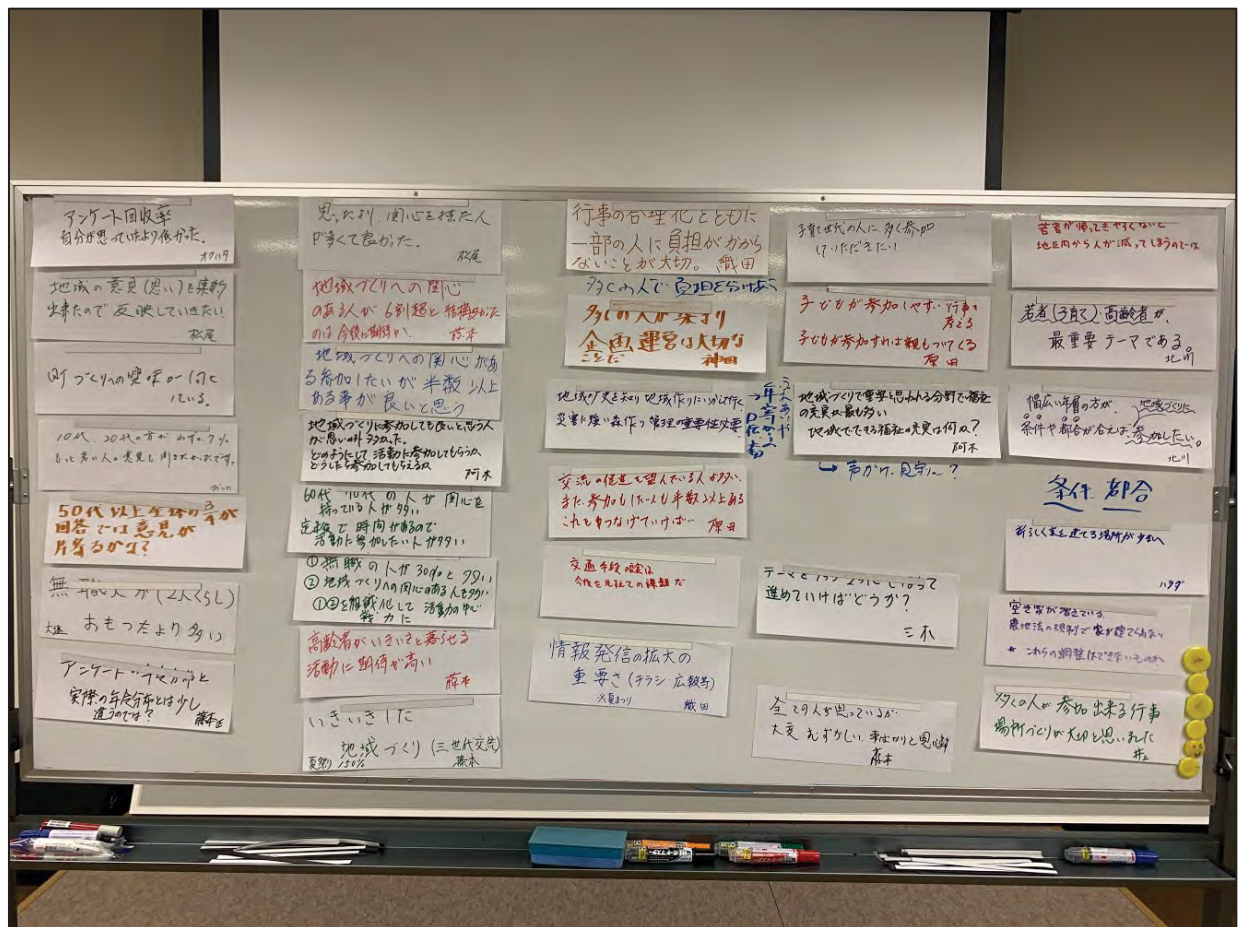 アンケート回収率
自分が思っていたより低かった。
オクハタ
地域の意見(思い)を集約
出来たので反映していきたい
松尾
町づくりへの
いる。
10代、20代の方が
もっと若い人の意見も
50代以上全体の3/4が
回答では意見が
片寄るかな?
無職人が(2人ぐらし)
おもったより多い
アンケート
実際の年令分布とは少し
違うのでは?
思ったより、関心を持た人
が多くて良かった。
松尾
地域づくりへの関心
のある人が6割超と結構多かった
のは今後に期待か
藤本
地域づくりへの関心があ
る参加したいが半数以上
ある事が良いと思う
地域づくりに参加しても良いと思う人
が思いの外多かった。
どのようにして活動に参加してもらうか、
どうしたら参加してもらえるか
阿木
60代 70代の人が関心を
持っている人が多い
定年後で時間があるので
活動に参加したい人が多い
①無職の人が30%と多い
②地域づくりへの関心のある人も多い
①②を組織化して活動の中心
戦力に
高齢者がいきいきと暮らせる
活動に期待が高い
藤本
いきいきした
地域づくり(三世代交流)
藤本
夏祭り 150%
行事の合理化とともに
一部の人に負担がかから
ないことが大切。 織田
多くの人で負担を分けあう
多くの人が集まり
企画運営は大切な
ことだ 神田
災害に強い森作り管理の重要性必要
交流の促進を望んでいる人が多い
また、参加もしたい人も半数以上ある
これをもつなげていけば… 原田
交通手段の確保は
今後を見越しての課題だ
情報発信の拡大の
重要さ(チラシ・広報等)
織田
子育て世代の人に多く参加
していただきたい
子どもが参加しやすい行事を
考える
子どもが参加すれば親もついてくる
原田
地域づくりで重要と思われる分野で福祉
の充実が最も多い
地域でできる福祉の充実は何か?
阿木
声かけ、見守り〜?
進めていけばどうか?
三木
全ての人が思っているが
大変むずかしい事ばかりと思います
若者が帰ってきやすくないと
地区内から人が減ってしまうのでは
若者(子育て)・高齢者が、
最重要テーマである。
北川
幅広い年層の方が、地域づくりに
条件や都合が合えば、参加したい。
北川
条件 都合
新らしく家を建てる場所が少ない
ハタダ
空き家が増えている
農地法の規制で家が建てられない
* これらの調整はできないものか
多くの人が参加出来る行事
場所づくりが大切と思いました
井上